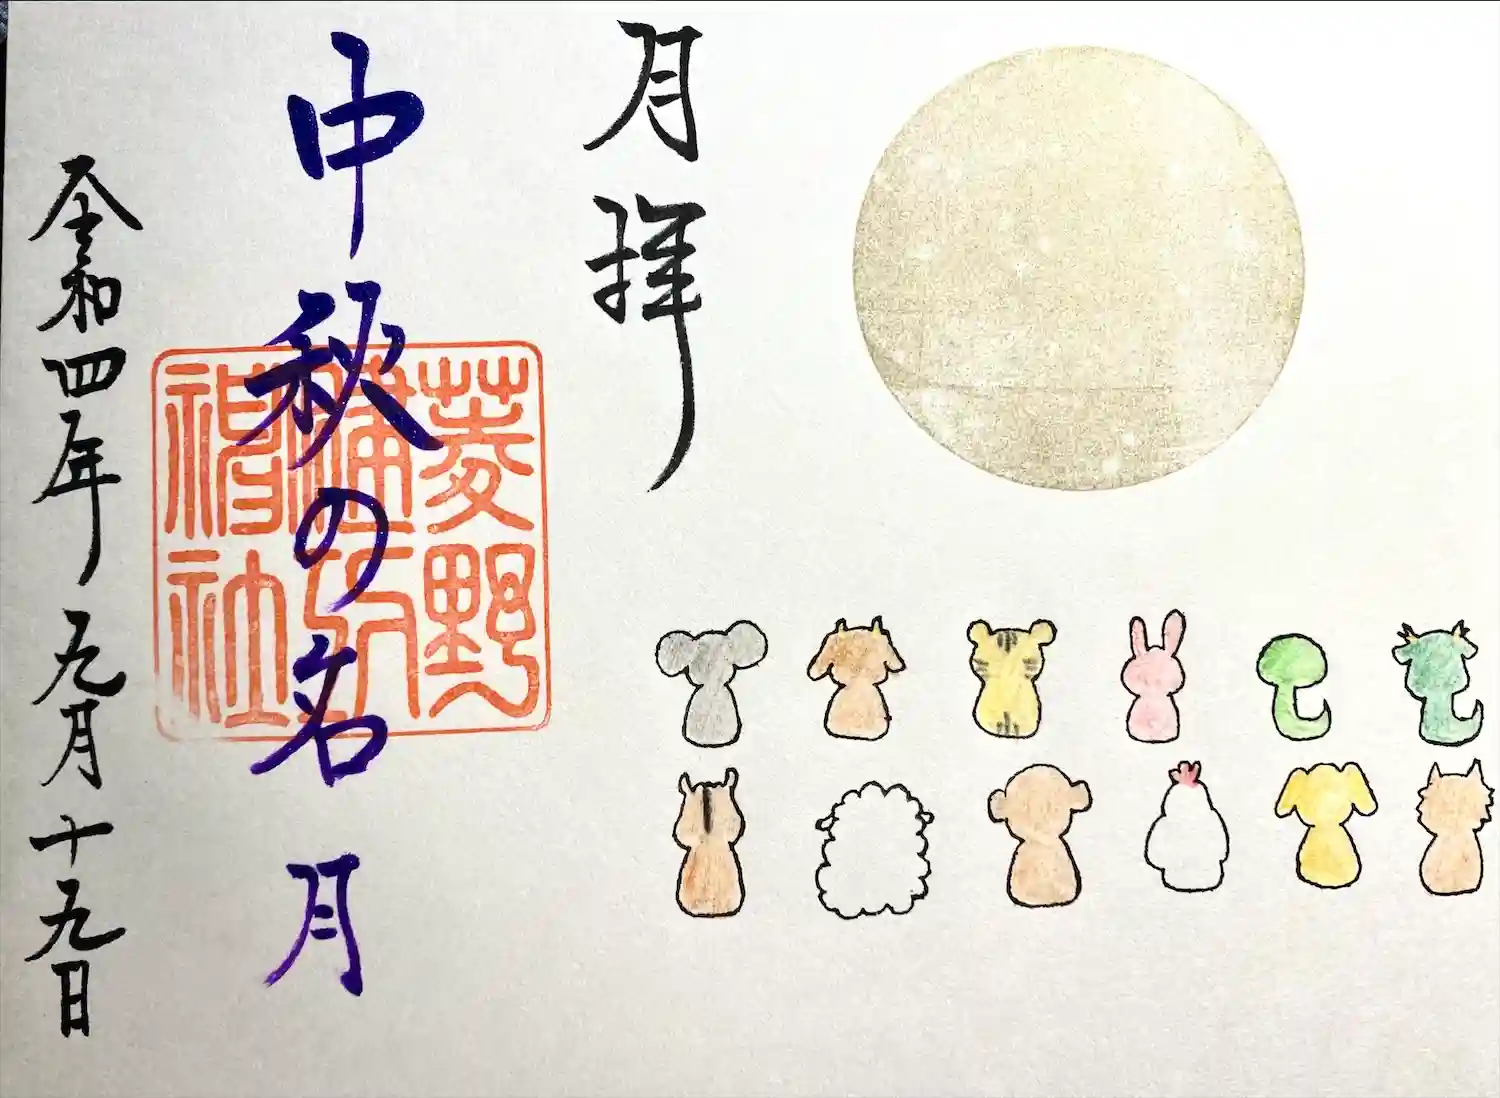 月拝
中秋の名月
菱野
健功
神社
令和四年九月十九日